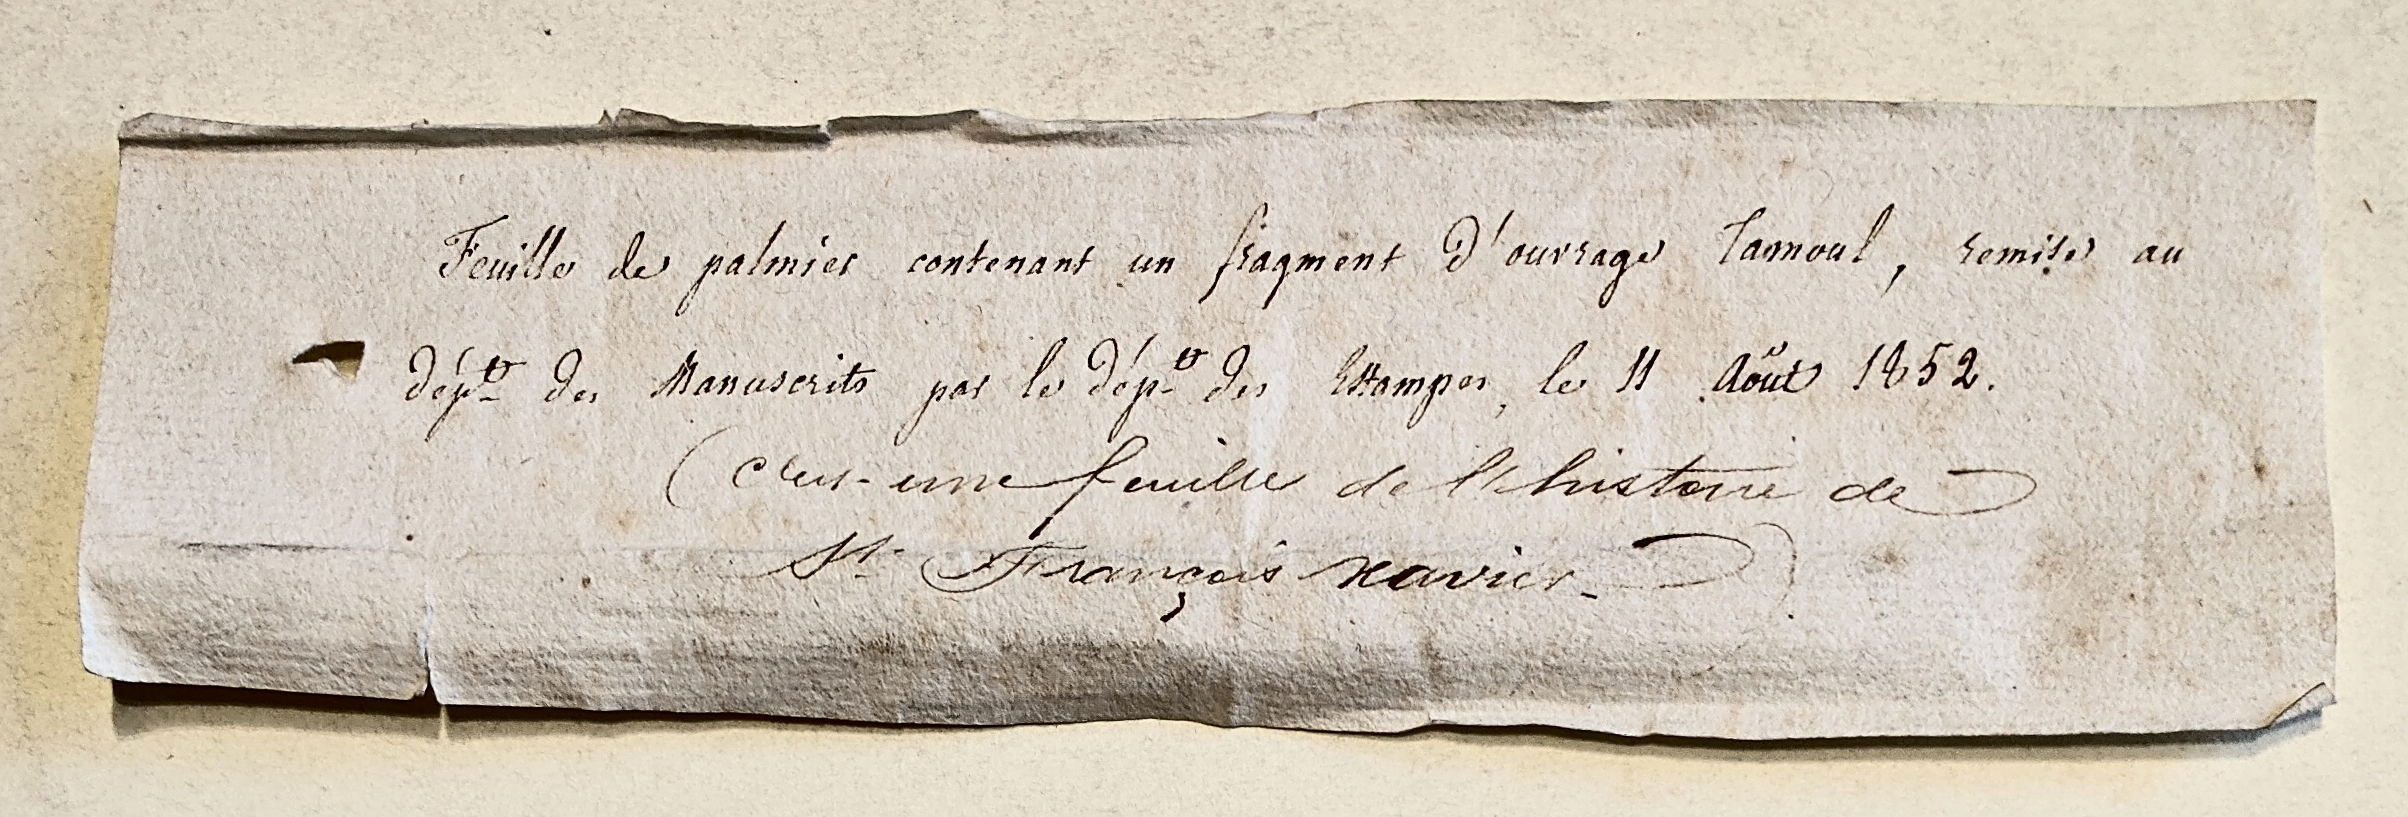 Feuille de palmier contenant un fragment d'ouvrage Tamoul, remise au
dépt des Manuscrits par le dépt des Estampes, le 11 Août 1852.
(C'est une feuille de l'histoire de
St. François Xavier.)